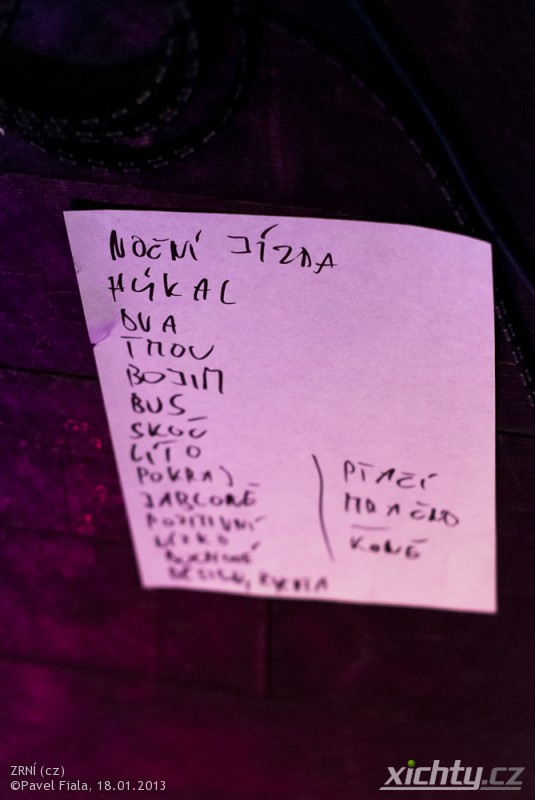 NOČNÍ JÍZDA
HÝKAL
DVA
TMOU
BOJÍM
BUS
SKOČ
LÍTO
POKRAJ
JABLONĚ
POZITIVNÍ
PTAČÍ
MRAČNO
KONĚ
ZRNÍ (cz)
©Pavel Fiala, 18.01.2013
xichty.cz